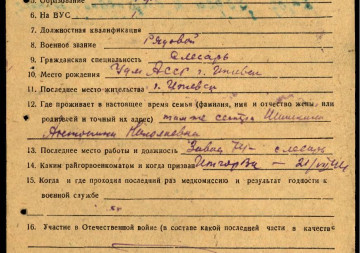 5. Образование
6. На ВУС
7. Должностная квалификация
8. Военное звание Рядовой
9. Гражданская специальность слесарь
10. Место рождения Удм АССР г. Ижевск
11. Последнее место жительства г. Ижевск
12. Где проживает в настоящее время семья (фамилия, имя и отчество жены или
родителей и точный их адрес) сестра
Антонина Николаевна
13. Последнее место работы и должность Завод слесарь
14. Каким райгорвоенкоматом и когда призван
15. Когда и где проходил последний раз медкомиссию и результат годности к
военной службе
16. Участие в Отечественной войне (в составе какой последней части и в качестве